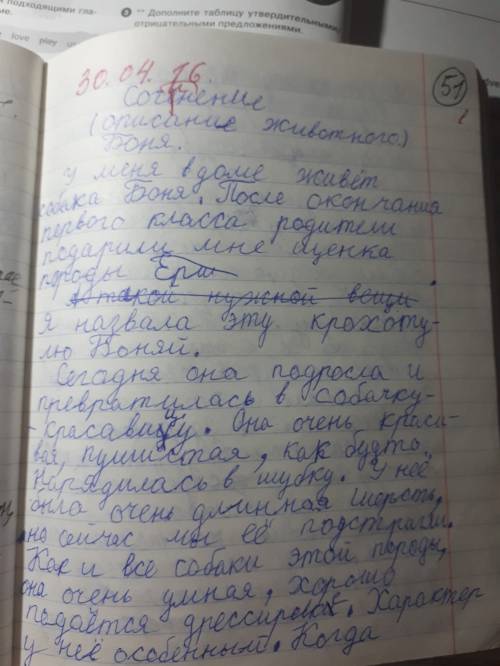 5 ** Дополните таблицу утвердительными,
отрицательными предложениями.
подходящими гла-
love play
30.04.26.
51
Сочинение
(описание животного.)
Боня.
У меня в доме живёт
собака Боня. После окончания
первого класса родители
подарили мне щенка
породы Ерш
такой нужной вещи
Я назвала эту крохоту-
лю Боняй.
Сегодня она подросла и
превратилась в собачку-
-красавицу. Она очень краси-
вая, пушистая, как будто
нарядилась в шубку. У неё
была очень длинная шерсть,
но сейчас мы её подстригли.
Как и все собаки этой породы,
она очень умная, хорошо
подаётся дрессировке. Характер
у неё особенный. Когда